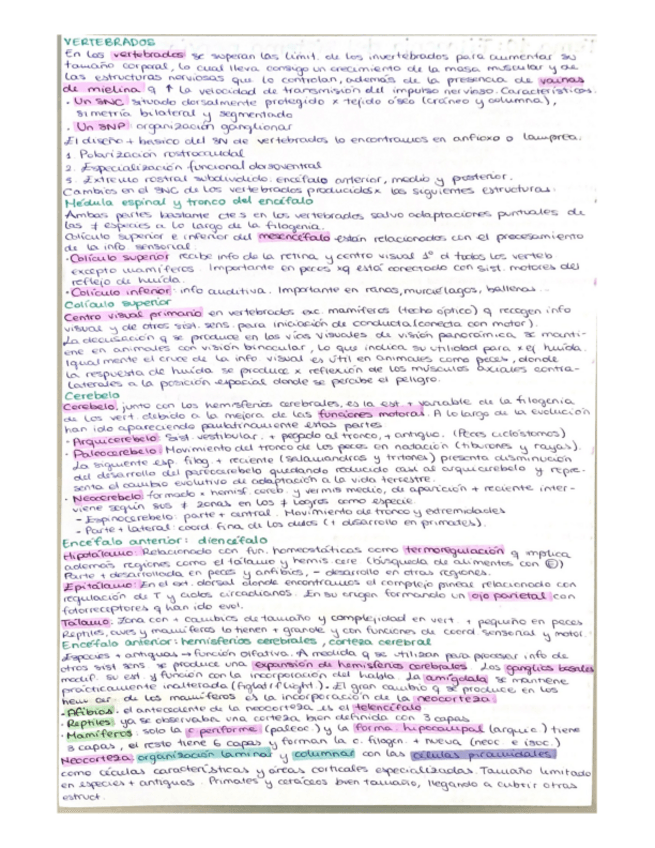 VERTEBRADOS
En los vertebrados se superan las limit. de los invertebrados para aumentar su
tamaño corporal, lo cual lleva consigo un crecimiento de la masa muscular y de
las estructuras nerviosas que lo controlan, además de la presencia de vainas
de mielina q ↑ la velocidad de transmisión del impulso nervioso. Características:
· Un SNC situado dorsalmente protegido x tejido óseo (cráneo y columna),
simetría bilateral y segmentado
· Un SNP: organización ganglionar
El diseño + básico del SN de vertebrados lo encontramos en anfioxo o lamprea.
1. Polarización rostrocaudal
2. Especialización funcional dorsoventral
3. Extremo rostral subdividido: encéfalo anterior, medio y posterior.
Cambios en el SNC de los vertebrados producidos x las siguientes estructuras:
Médula espinal y tronco del encéfalo
Ambas partes bastante ctes en los vertebrados salvo adaptaciones puntuales de
las ≠ especies a lo largo de la filogenia.
Colículo superior e inferior del mesencéfalo están relacionados con el procesamiento
de la info sensorial.
· Colículo superior recibe info de la retina y centro visual 1º d todos los verteb
excepto mamíferos. Importante en peces xq está conectado con sist. motores del
reflejo de huida.
· Colículo inferior: info auditiva. Importante en ranas, murciélagos, ballenas...
Colículo superior
Centro visual primario en vertebrados exc. mamíferos (techo óptico) q recogen info
visual y de otros sist. sens. para iniciación de conducta (conecta con motor).
La decusación q se produce en las vías visuales de visión panorámica, se manti-
ene en animales con visión binocular, lo que indica su utilidad para x ej. huida.
Igualmente el cruce de la info. visual es útil en animales como peces, donde
la respuesta de huida se produce x reflexión de los músculos axiales contra-
laterales a la posición espacial donde se percibe el peligro.
Cerebelo
Cerebelo, junto con los hemisferios cerebrales, es la est. + variable de la filogenia
de los vert. debido a la mejora de las funciones motoras. A lo largo de la evolución
han ido apareciendo paulatinamente estas partes
· Arquicerebelo: Sist. vestibular, + pegado al tronco, + antiguo. (Peces ciclóstomos)
· Paleocerebelo: Movimiento del tronco de los peces en natación (tiburones y rayas).
La siguiente esp. filog. + reciente (salamandras y tritones) presenta disminución
del desarrollo del paleocerebelo quedando reducido casi al arquicerebelo y repre-
senta el cambio evolutivo de adaptación a la vida terrestre.
· Neocerebelo: formado x hemisf. cereb. y vermis medio, de aparición + reciente inter-
viene según sus ≠ zonas en los ≠ logros como especie.
- Espinocerebelo: parte + central. Movimiento de tronco y extremidades
- Parte + lateral: coord. fina de los dedos (+ desarrollo en primates).
Encéfalo anterior: diencéfalo
Hipotálamo: Relacionado con fun. homeostáticas como termorregulación q implica
además regiones como el tálamo y hemis. cere (búsqueda de alimentos con E)
Parte + desarrollada en peces y anfibios, - desarrollo en otras regiones.
Epitálamo: En el ext. dorsal donde encontramos el complejo pineal relacionado con
regulación de T y ciclos circadianos. En su origen formando un ojo parietal con
fotorreceptores q han ido evol.
Tálamo: Zona con + cambios de tamaño y complejidad en vert. + pequeño en peces
Reptiles, aves y mamíferos lo tienen + grande y con funciones de coord. sensorial y motor.
Encéfalo anterior: hemisferios cerebrales, corteza cerebral
Especies + antiguas → función olfativa. A medida q se utilizan para procesar info de
otros sist sens. se produce una expansión de hemisferios cerebrales. Los ganglios basales
modif. su est. y función con la incorporación del habla. La amígdala se mantiene
prácticamente inalterada (fight/flight). El gran cambio q se produce en los
hem. cer. de los mamíferos es la incorporación de la neocorteza.
- Afibios: el antecedente de la neocorteza es el telencéfalo
· Reptiles: ya se observaba una corteza bien definida con 3 capas
· Mamíferos: solo la c. piriforme (paleoc.) y la forma. hipocampal (arquic.) tiene
3 capas, el resto tiene 6 capas y forman la c. filogen. + nueva (neoc. e isoc.)
Neocorteza: organización laminar y columnar con las células piramidales
como células características y áreas corticales especializadas. Tamaño limitado
en especies + antiguas. Primates y cetáceos bien tamaño, llegando a cubrir otras
estruct.